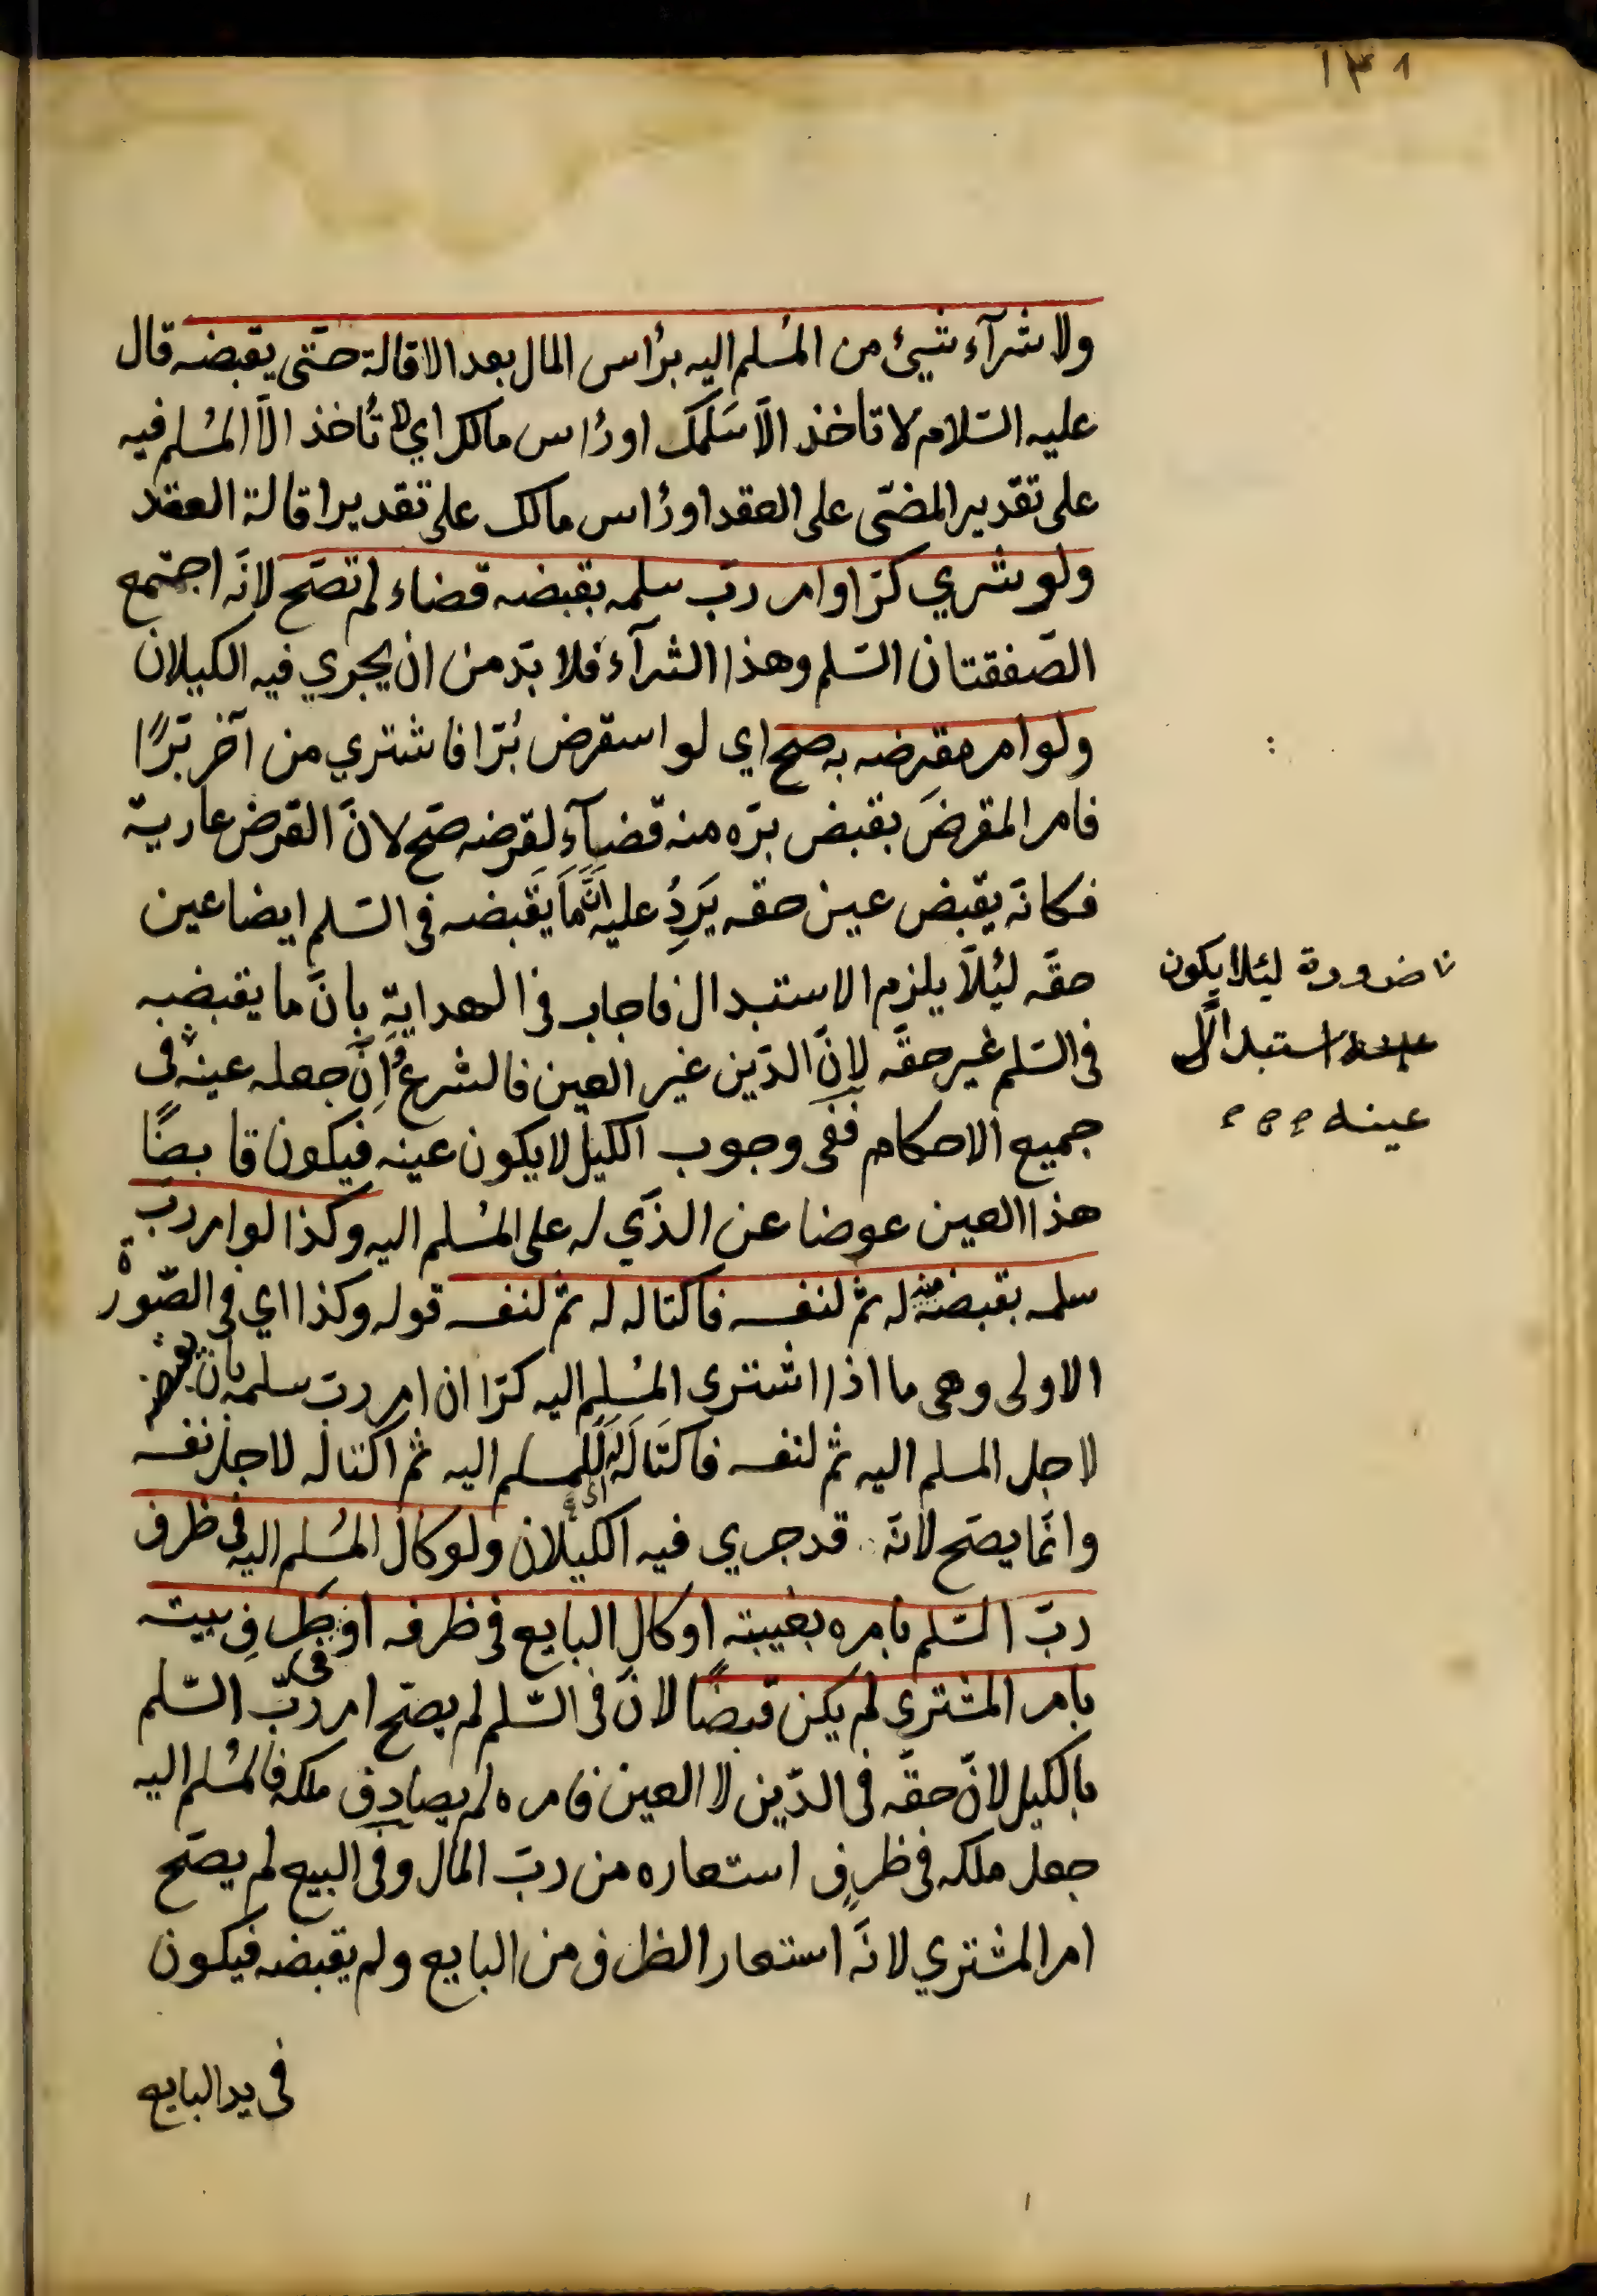 ١٣١
ولا شرآء شيئ من المُسلم اليه برُاس المال بعد الاقالة حتّى يقبضه قال
عليه السّلام لا تاخذ الّا سَلَمَك او رُاس مالك اي لا تُاخذ الّا المُسْلم فيه
على تقدير المضّى على العقد او رُاس مالك على تقدير اقالة العقد
ولو شري كرّا وامر ربّ سلمه بقبضه قضاء لم تصّح لانّه اجتمع
الصّفقتان السّلم وهذا الشرآء فلا بدّ من ان يجري فيه الكيلان
ولو امر مقرضه به صح اي لو استقرض بُرّا فاشتري من آخر بَرًّا
فامر المقرضَ بقبض برّه منه قضآءٍ لِقَرضه صّح لانّ القرض عارية
فكانّه يقبض عين حقه يَرِدُ عليه انَّ مَا يَقَبضه فى السّلم ايضا عين
حقّه ليُلّا يلزم الاستبدال فاجاب فى الهداية بانّ ما يقبضه
فى السّلم غير حقّه لانّ الدّين غير العين فالشرعُ اِنَّ جعله عينه فى
جميع الاحكام ففى وجوب الكيل لا يكون عينه فيكون قابضًا
هذا العين عوضا عن الذّي له على المُسْلم اليه وكذا لو امر ربّ
سلمه بقبضه منه له ثمّ لنفسه فاكتاله له ثمّ لنفسه قوله وكذا اى فى الصّورة
الاولى وهى ما اذا اشترى المُسْلم اليه كرّا ان امر ربّ سلمه بان يقبضه
لاجل المسلم اليه ثمّ لنفسه فاكتَالَه اى لِلمسلم اليه ثمّ اكتاله لاجل نفسه
وانّما يصّح لانّه قد جري فيه الكيلان ولو كال المُسْلم اليه فى ظرف
ربّ السّلم بامره بغيبته او كال البايع فى ظرفه او ظرف فى بيته
بامر المشتري لم يكن قبضًا لانّ فى السّلم لم يصّح امر ربّ السّلم
بالكيل لانّ حقّه فى الدّين لا العين فامره لم يصادف ملكه فالمُسْلم اليه
جعل ملكه فى ظرفٍ استعاره من ربّ المال وفى البيع لم يصّح
امر المشتري لانّه استعار الظرف من البايع ولم يقبضه فيكون
فى يد البايع
ضرورة ليئلا يكون
استبدالًا
عينه